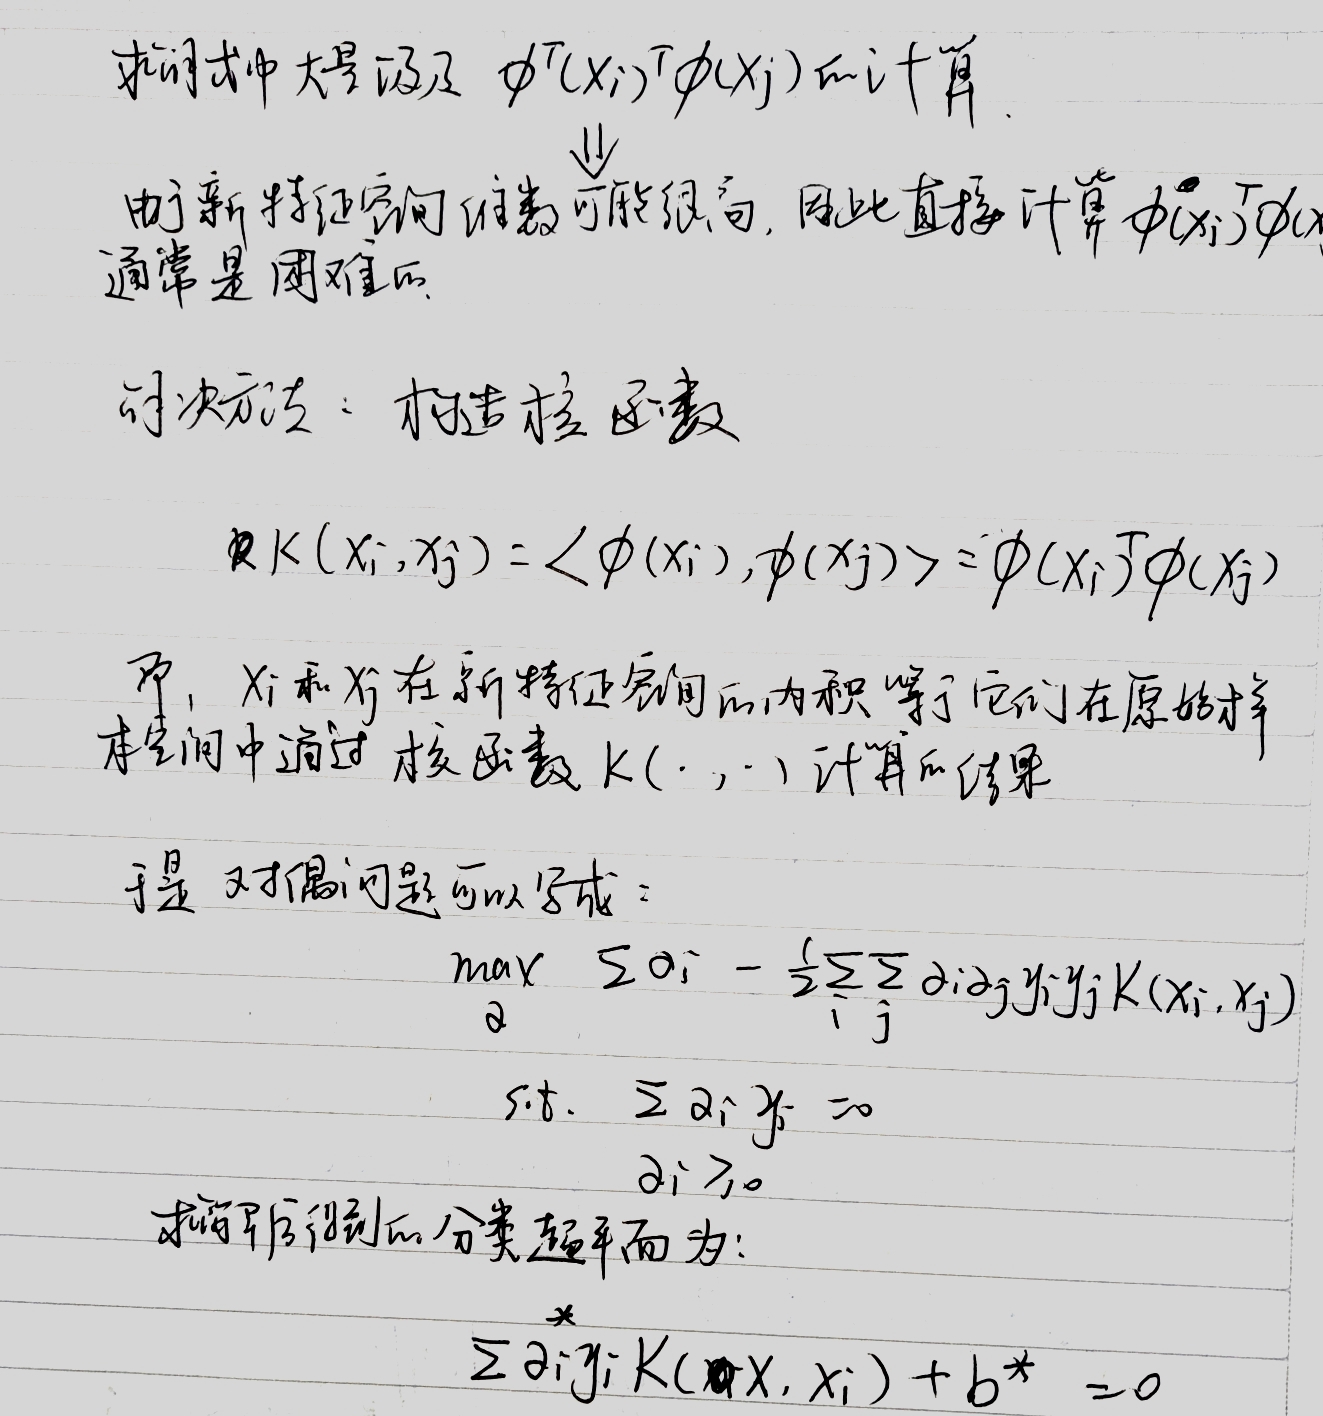 求解式中大量涉及 φᵀ(xi)ᵀφ(xj)的计算.
⇓
由于新特征空间维数可能很高, 因此直接计算 φ(xi)ᵀφ(x
通常是困难的.
解决方法: 构造核函数
K(xi,xj)=<φ(xi),φ(xj)>=φ(xi)ᵀφ(xj)
即, xi和xj在新特征空间的内积等于它们在原始样
本空间中通过核函数K(·,·)计算的结果
于是对偶问题可以写成:
max Σαi - ½ΣΣαiαjyiyjK(xi,xj)
α i j
s.t. Σαiyi=0
αi≥0
求解后得到的分类超平面为:
Σαi*yiK(x,xi)+b*=0